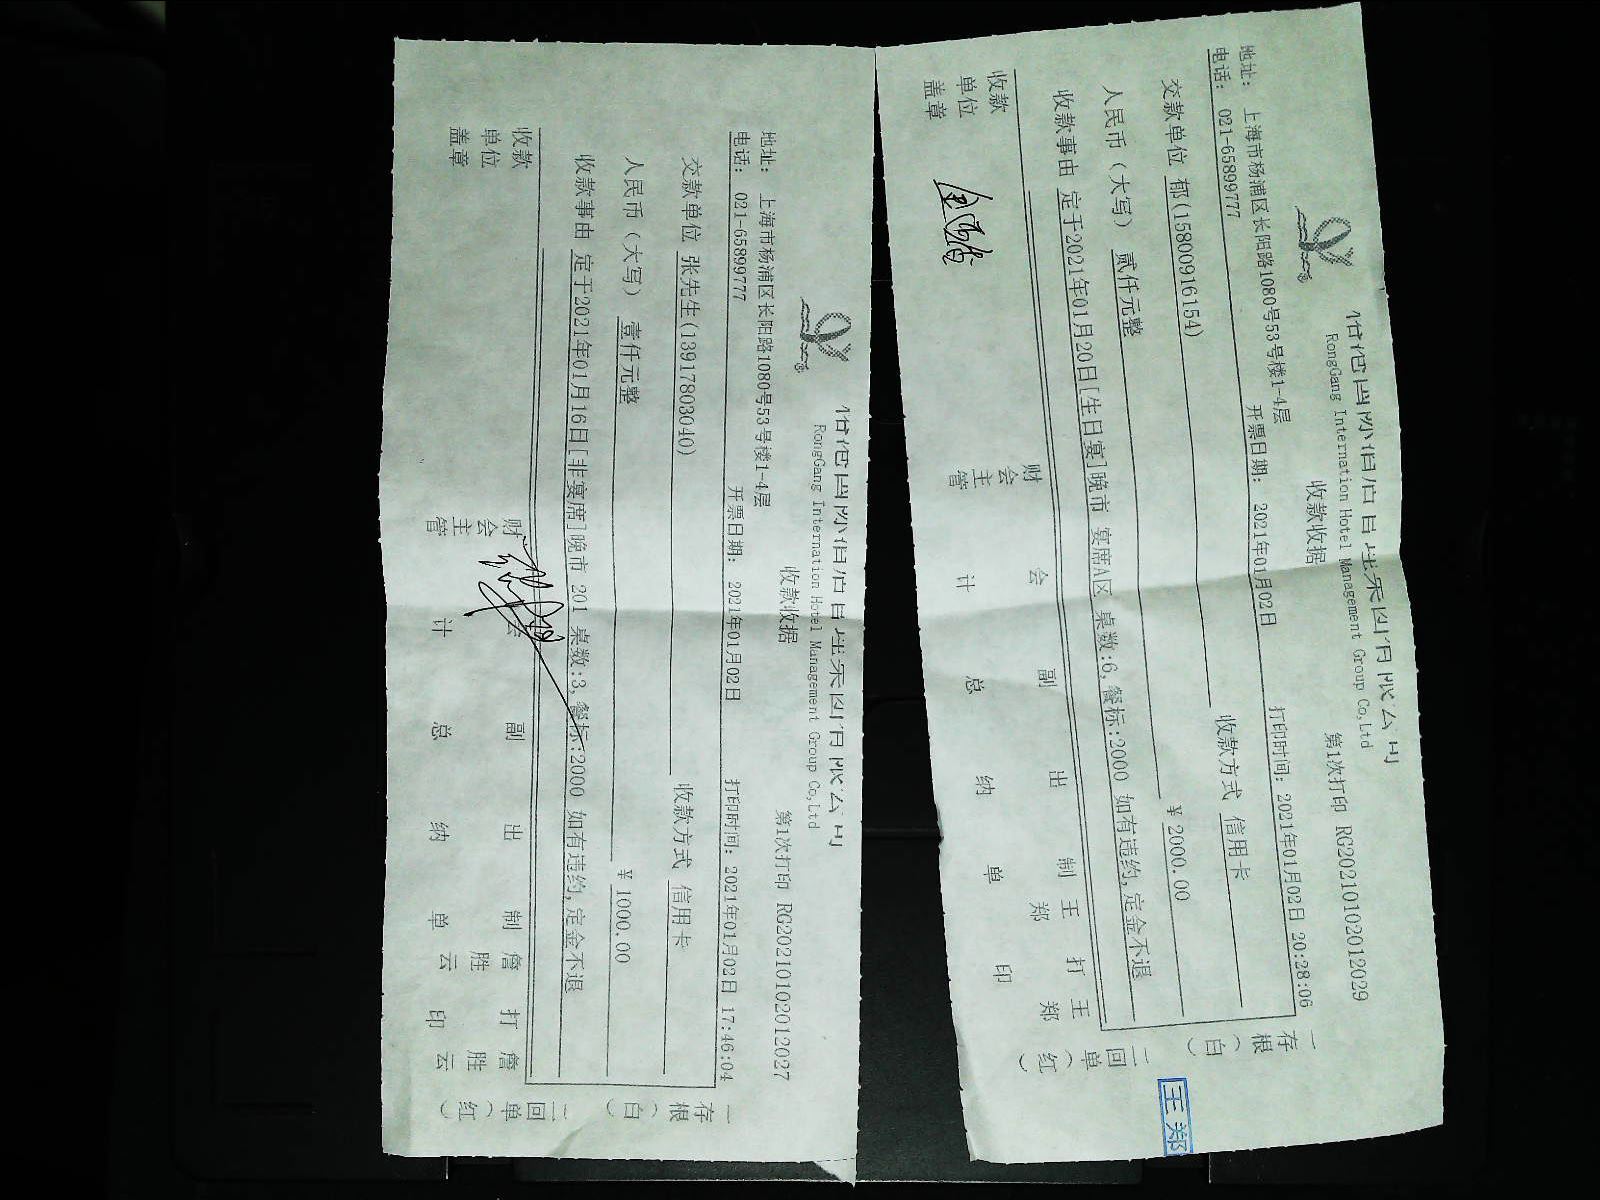 RongGang Internation Hotel Management Group Co,Ltd
收款收据
第1次打印 RG20210102012027
地址: 上海市杨浦区长阳路1080号53号楼1-4层
电话: 021-65899777
开票日期: 2021年01月02日
打印时间: 2021年01月02日 17:46:04
交款单位 张先生(13917803040)
收款方式 信用卡
人民币（大写） 壹仟元整
¥ 1000.00
收款事由 定于2021年01月16日[非宴席]晚市 201 桌数:3,餐标:2000 如有违约,定金不退
收款单位盖章
财会主管
会计
副总
出纳
制单 詹胜云
打印 詹胜云
一存根（白）
二回单（红）
RongGang Internation Hotel Management Group Co,Ltd
收款收据
第1次打印 RG20210102012029
地址: 上海市杨浦区长阳路1080号53号楼1-4层
电话: 021-65899777
开票日期: 2021年01月02日
打印时间: 2021年01月02日 20:28:06
交款单位 郁(15800916154)
收款方式 信用卡
人民币（大写） 贰仟元整
¥ 2000.00
收款事由 定于2021年01月20日[生日宴]晚市 宴席A区 桌数:6,餐标:2000 如有违约,定金不退
收款单位盖章
财会主管
会计
副总
出纳
制单 王郑
打印 王郑
一存根（白）
二回单（红）
王郑